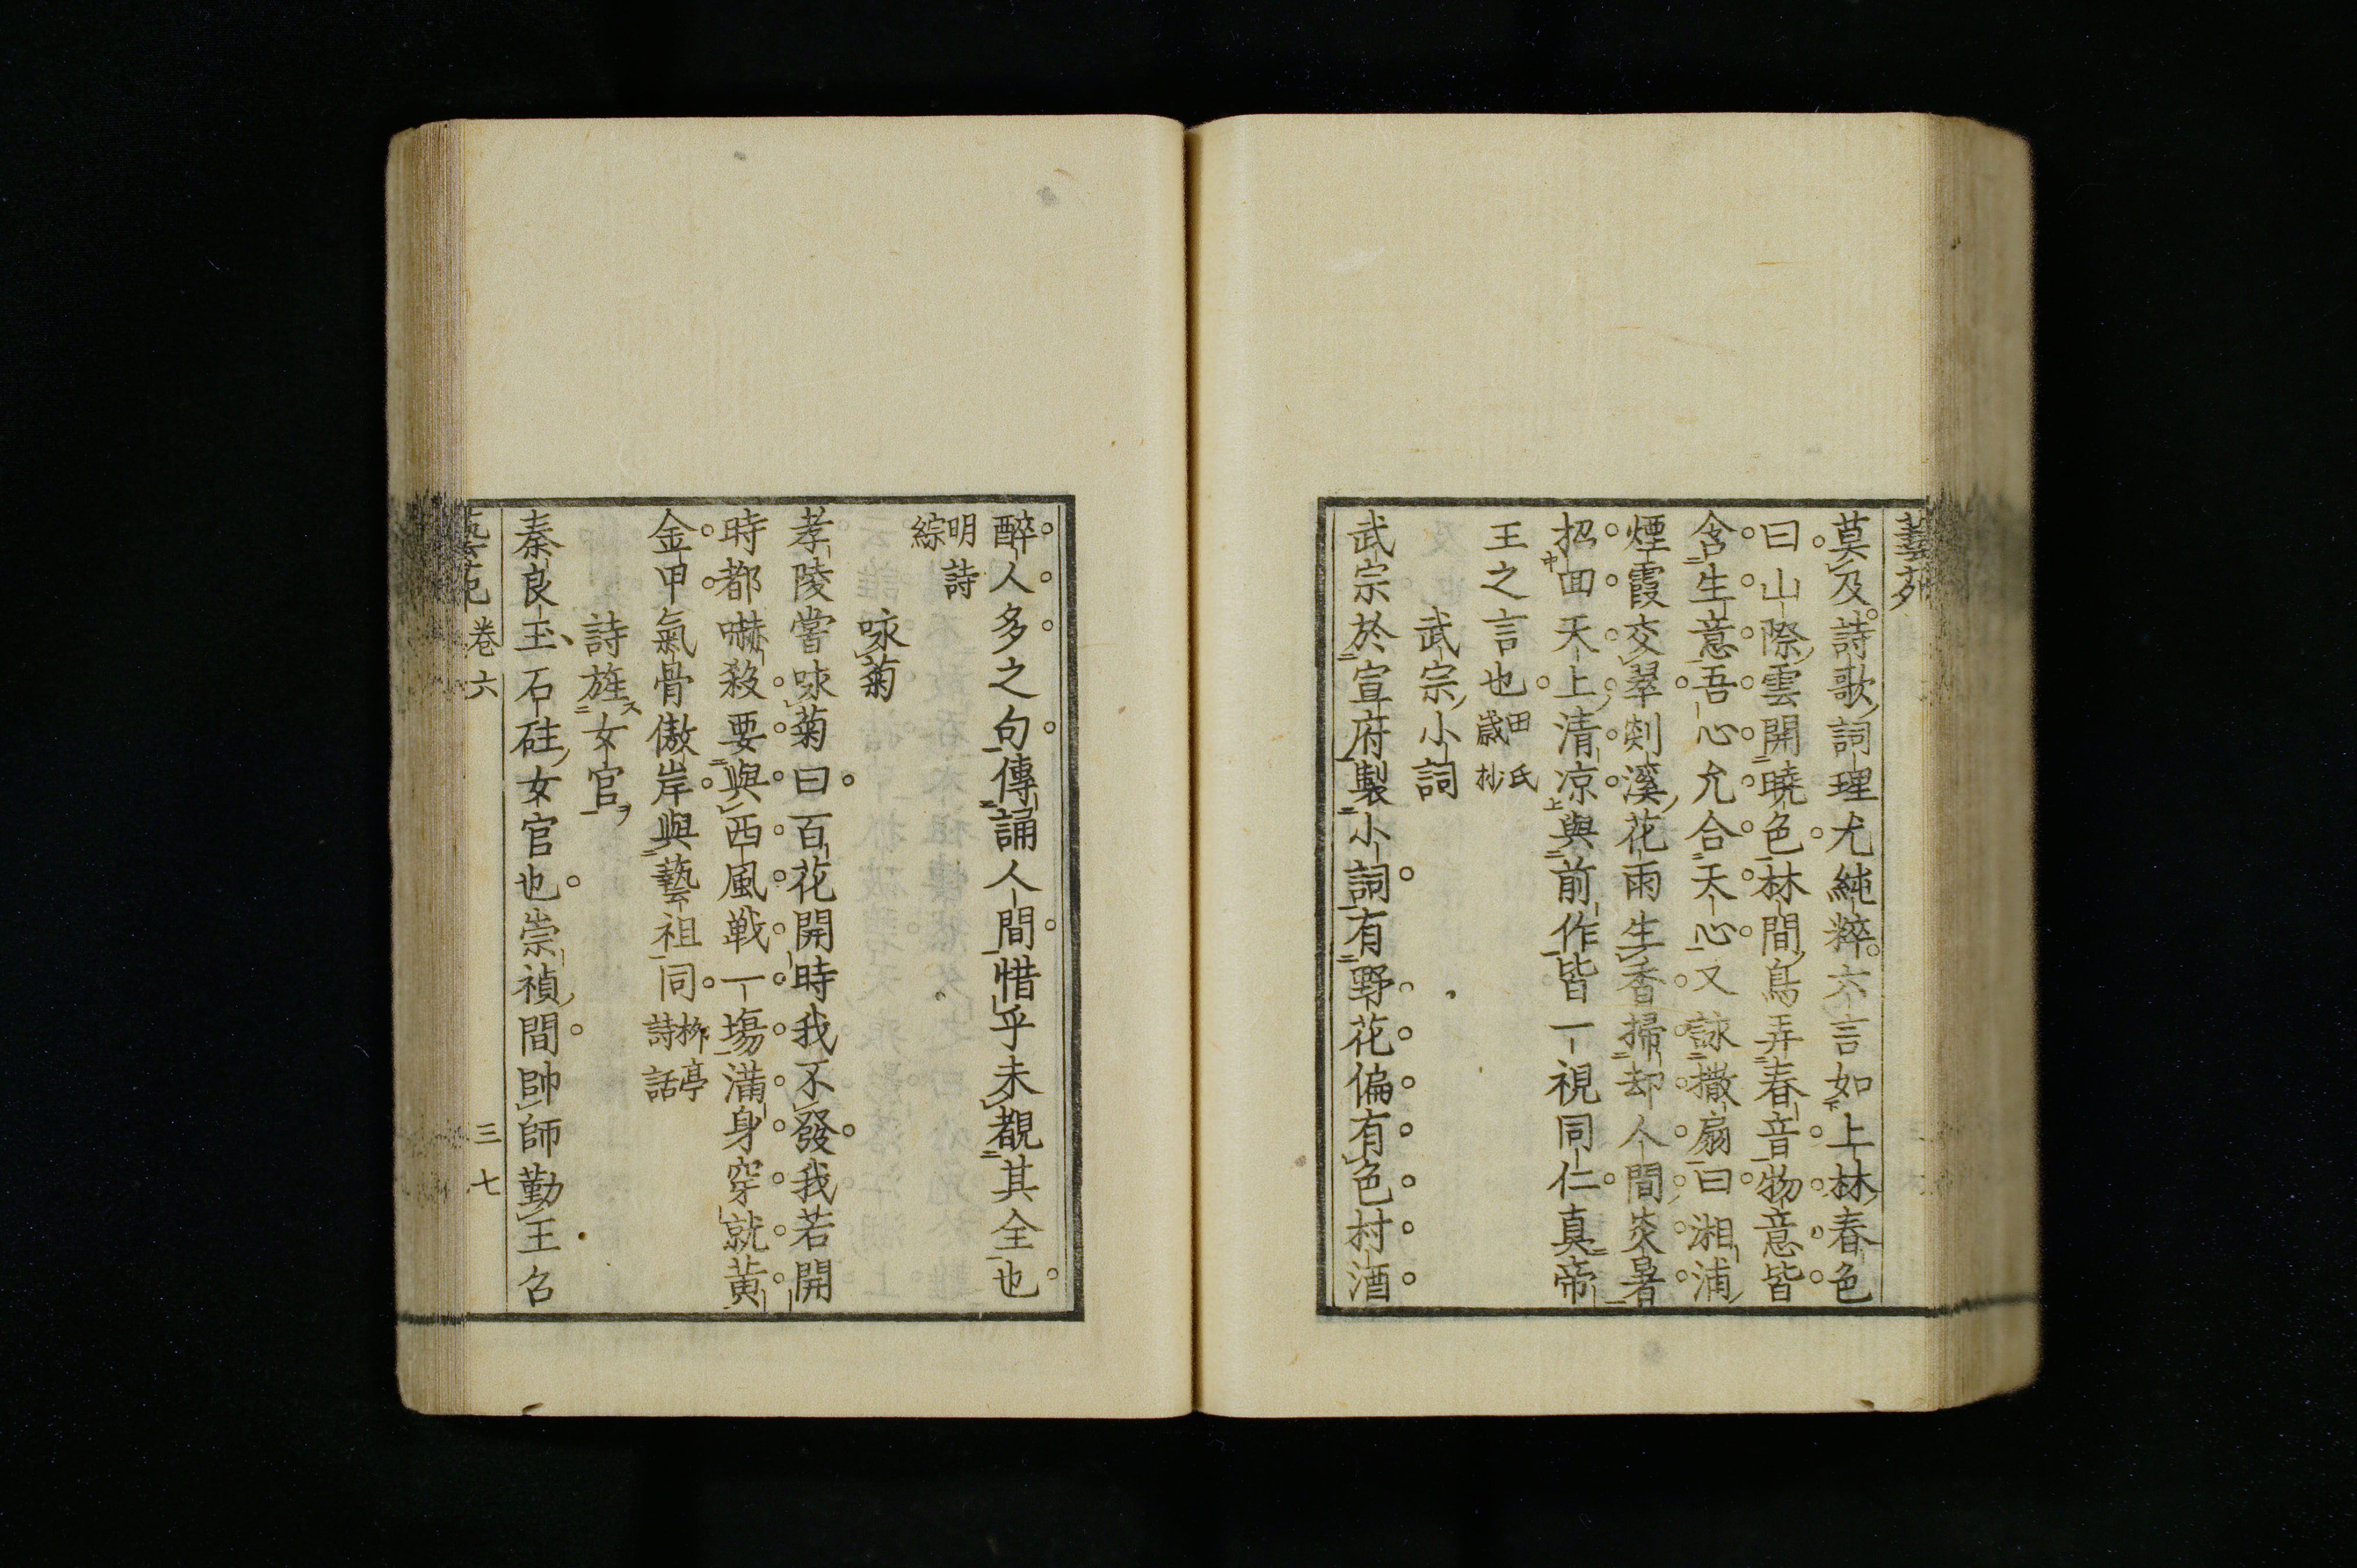 莫及詩歌詞理尤純粹六言如上林春色
曰山際雲開曉色林間鳥弄春音物意皆
含生意吾心允合天心又詠撒扇曰湘浦
煙霞交翠剡溪花雨生香掃却人間炎暑
招回天上清凉與前作皆一視同仁真帝
王之言也田氏歲抄
武宗小詞
武宗於宣府製小詞有野花偏有色村酒
醉人多之句傳誦人間惜乎未覩其全也
明詩綜
咏菊
孝陵嘗咏菊曰百花開時我不發我若開
時都嚇殺要與西風戰一場滿身穿就黃
金甲氣骨傲岸與藝祖同柳亭詩話
詩旌女官
秦良玉石砫女官也崇禎間帥師勤王召
藝苑 卷六 三七